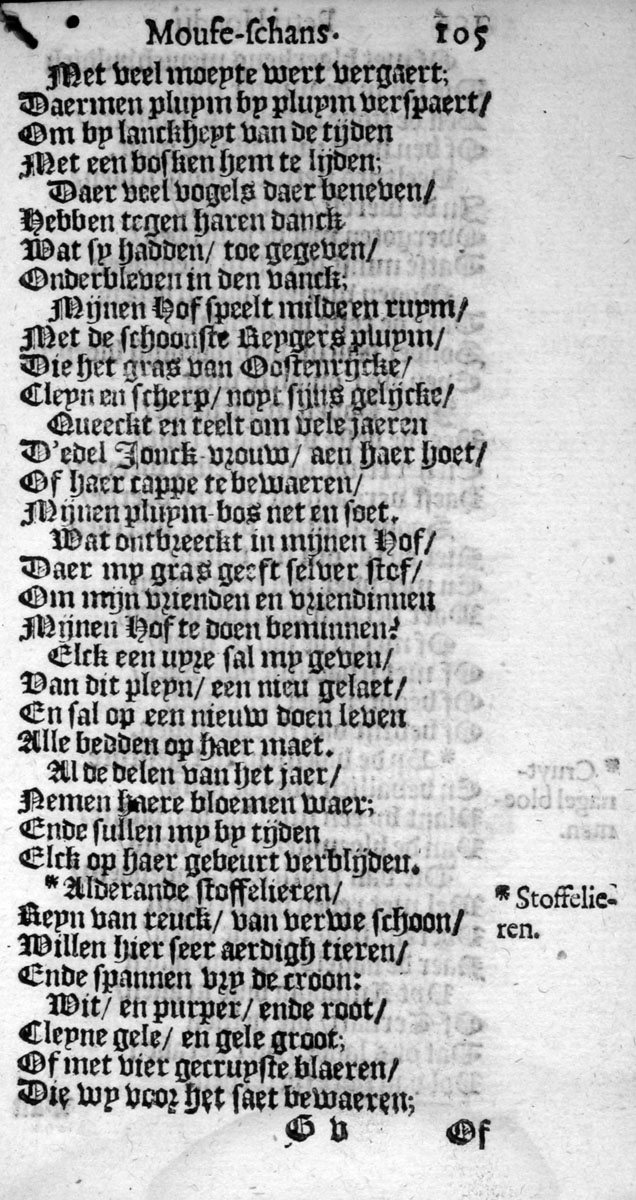 Mouse-schans. 105
Met veel moeyte wert vergaert;
Daermen pluym by pluym verspaert/
Om by lanckheyt van de tijden
Met een bosken hem te lijden;
Daer veel vogels daer beneven/
Hebben tegen haren danck
Wat sy hadden/ toe gegeven/
Onderbleven in den vanck;
Mijnen Hof speelt milde en ruym/
Met de schoonste Reygers pluym/
Die het gras van Oostenrijcke/
Cleyn en scherp/ noyt sijns gelijcke/
Queeckt en teelt om vele jaeren
D'edel Jonck-vrouw/ aen haer hoet/
Of haer cappe te bewaeren/
Mijnen pluym-bos net en soet.
Wat ontbreeckt in mijnen Hof/
Daer my gras geeft selver stof/
Om mijn vrienden en vriendinnen
Mijnen Hof te doen beminnen?
Elck een uyre sal my geven/
Van dit pleyn/ een nieu gelaet/
En sal op een nieuw doen leven
Alle bedden op haer maet.
Al de delen van het jaer/
Nemen haere bloemen waer;
Ende sullen my by tijden
Elck op haer gebeurt verblijden.
*Alderande stoffelieren/
Reyn van reuck/ van verwe schoon/
Willen hier seer aerdigh tieren/
Ende spannen vry de croon:
Wit/ en purper/ ende root/
Cleyne gele/ en gele groot;
Of met vier gecruyste blaeren/
Die wy voor het saet bewaeren;
* Stoffelie-
ren.
G v Of